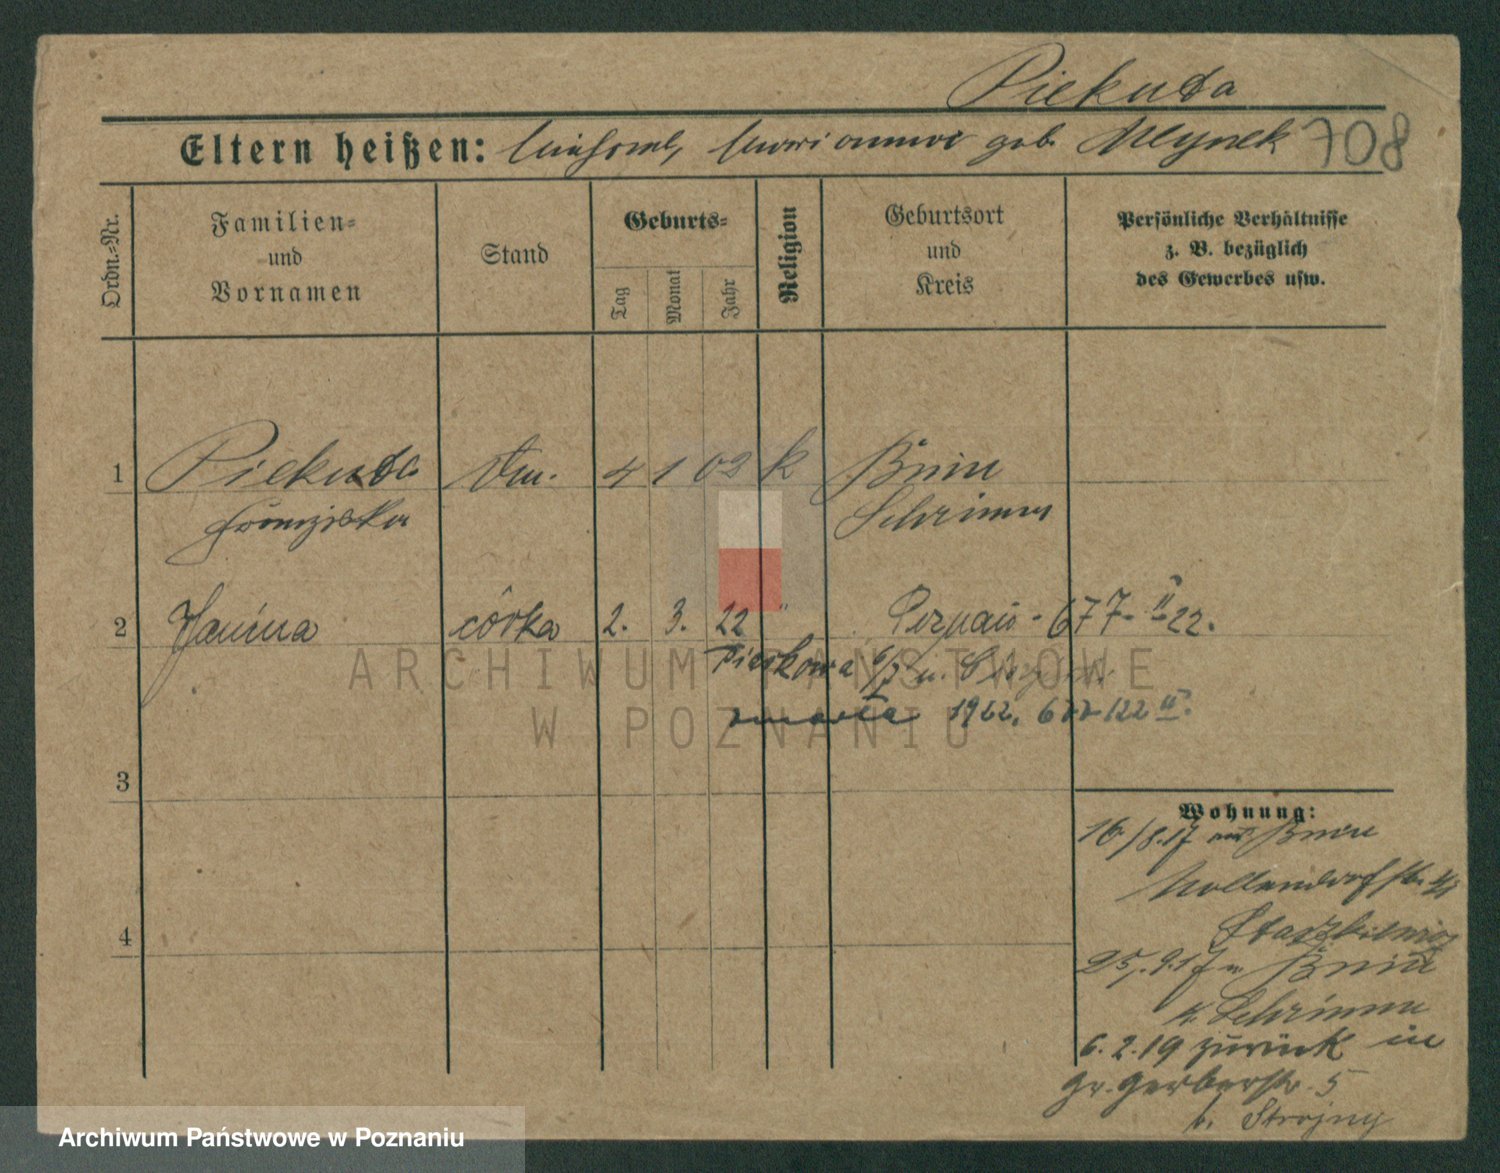 Piekuda
Eltern heißen: Michael, Marianna geb. Mlynek 708
Ordn.-Nr.
Familien-
und
Vornamen
Stand
Geburts-
Tag
Monat
Jahr
Religion
Geburtsort
und
Kreis
Persönliche Verhältnisse
z. B. bezüglich
des Gewerbes usw.
1 Piekuda 4 1 02 k Bnin
Franziska Schrimm
2 Janina córka 2. 3. 22 " Poznań - 677 II 22.
Piaskowa 6/7 u.
zmarła 1922. 677 122 II.
3
4
Wohnung:
16/8.17 aus Bnin
Nollendorfstr.
25.9.17 n. Bnin
Kr. Schrimm
6.2.19 zurück in
Gr. Gerberstr. 5
b. Strojny
ARCHIWUM PAŃSTWOWE
W POZNANIU
Archiwum Państwowe w Poznaniu